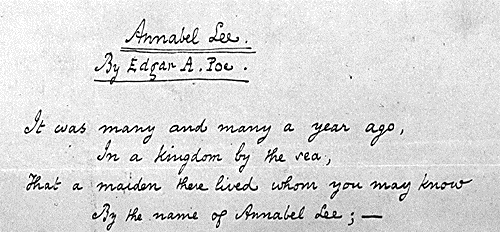 Annabel Lee.
By Edgar A. Poe.
It was many and many a year ago,
In a kingdom by the sea,
That a maiden there lived whom you may know
By the name of Annabel Lee; —